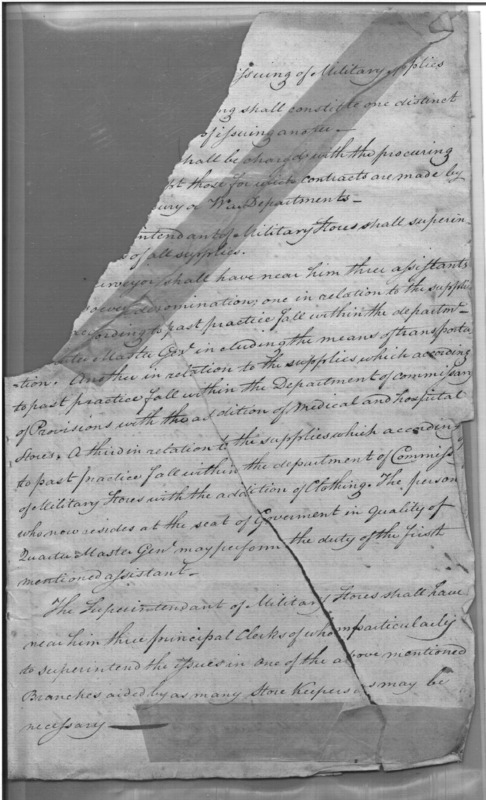 issuing of Military Supplies
ng shall constitute one distinct
of issuing another.—
shall be charged with the procuring
pt those for which contracts are made by
ury or War Departments—
intendant of Military Stores shall superin
of all supplies.
urveyor shall have near him three assistants
denomination, one in relation to the supplies
according to past practice fall within the departmt—
Master Genl including the means of transporta
tion. Another in relation to the supplies which according
to past practice fall within the Department of commissary
of Provisions with the addition of Medical and hospital
Stores. A third in relation to the supplies which according
to past practice fall within the department of Commiss
of Military Stores with the addition of Clothing. The person
who now resides at the seat of Goverment in quality of
Quarter Master Genl may perform the duty of the first
mentioned assistant—
The Superintendant of Military Stores shall have
near him three principal Clerks of whom particularly
do superintend the Issues in one of the above mentioned
Branches aided by as many Store Keepers as may be
necessary —